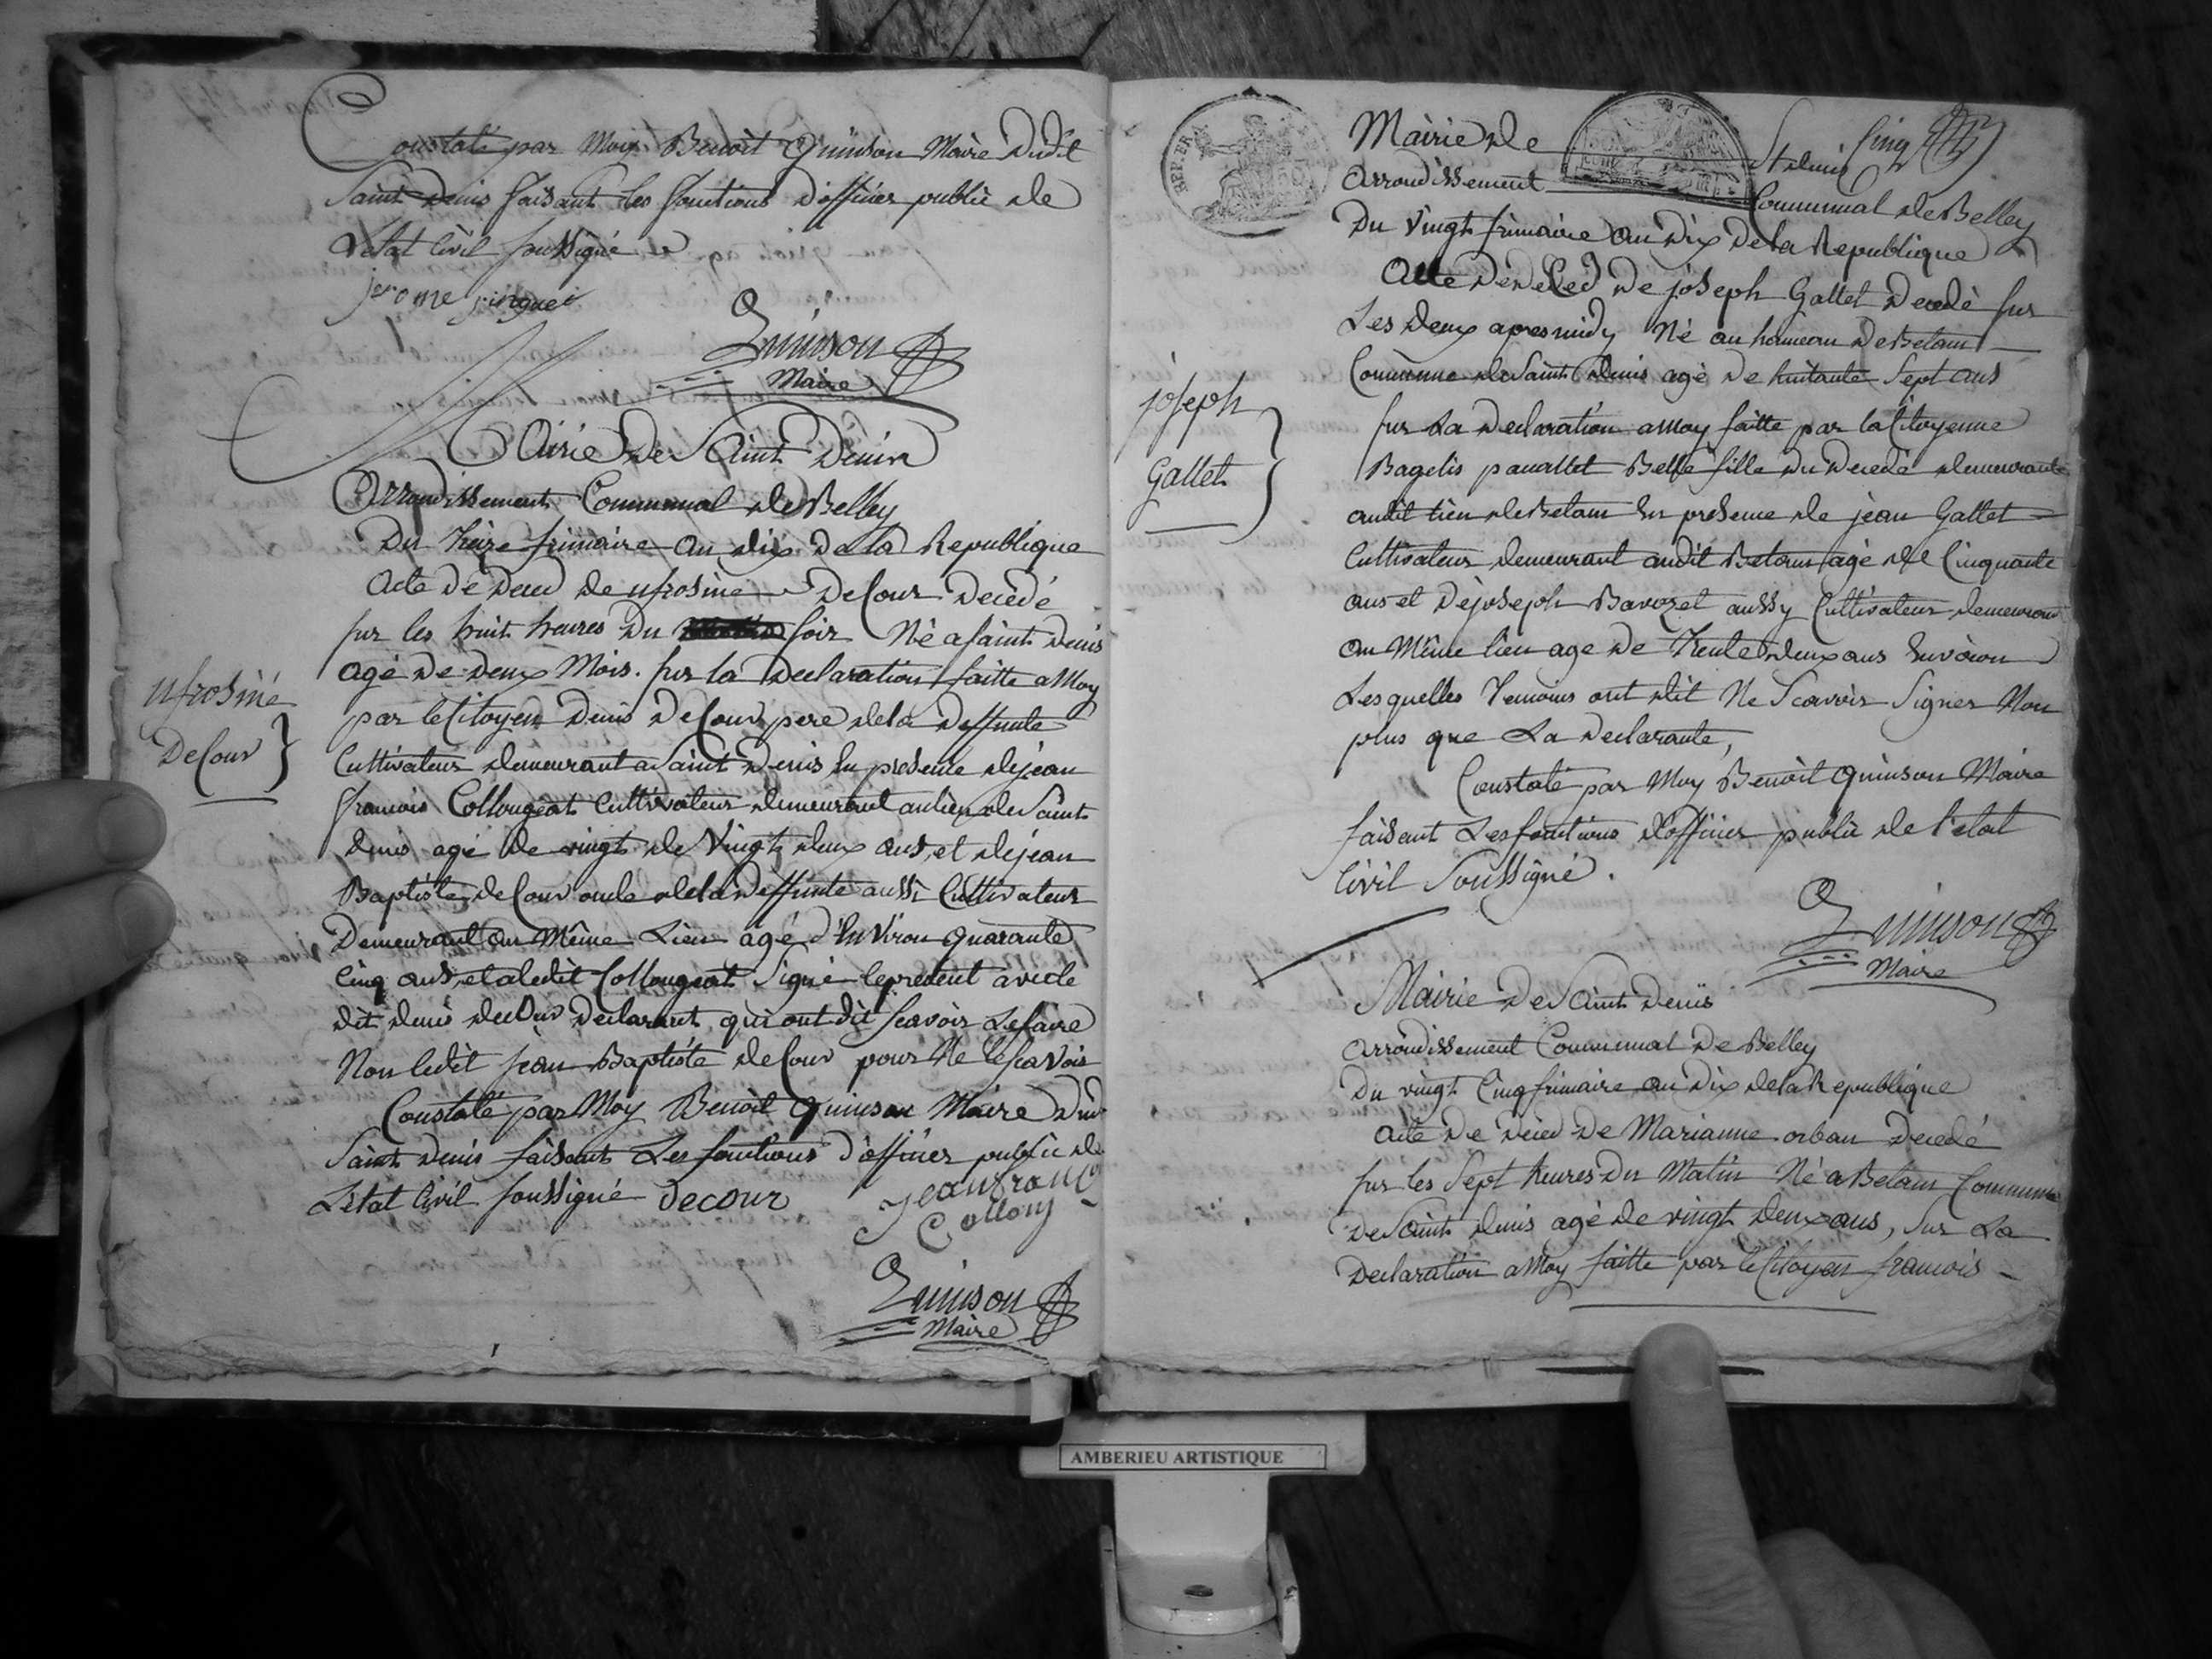 Constaté par Moy Benoit Quinson Maire Dudit
Saint Denis faisant les fonctions d'officier public de
L'etat Civil soussigné
jerome pinguet
Quinson
Maire
Mairie De Saint Denis
Arrondissement Communal de Belley
Du treize frimaire an dix De la Republique
Acte de Deced de ufrosine Decour Decédé
sur les huit heures Du soir Né a saint Denis
agé De deux Mois. sur la Declaration faitte a Moy
par le Citoyen Denis Decour pere de la Deffunte
ufrosine
Decour
Cultivateur demeurant a Saint Denis En presence de jean
francois Collougeat Cultivateur demeurant au lieu de Saint
denis agé de vingt de Vingt deux ans, et de jean
Baptiste deCour oncle de la Deffunte aussi Cultivateur
Demeurant au Même Lieu agé d'Environ quarante
Cinq ans, et a ledit Collougeat Signé le present avec le
dit denis deCour Declarant qui ont dit scavoir Le faire
Non ledit jean Baptiste deCour pour Ne le scavoir
Constaté par Moy Benoit Quinson Maire Du
Saint Denis faisant Les fonctions d'officier public de
L'etat Civil soussigné Decour
jeanfranc
Collony
Quinson
Maire
Mairie de St denis Cinq
Arrondissement Communal de Belley
Du Vingt frimaire an Dix De la Republique
Acte De deCed De joseph Gallet Decedé sur
Les Deux apres midy Né au hameau De Betan
Commune de Saint Denis agé De huitante Sept ans
joseph
Gallet
sur La Declaration a Moy faitte par la Citoyenne
Belle fille Du Decedé demeurante
audit lieu de Betan En presence de jean Gallet
Cultivateur demeurant audit Betan agé de Cinquante
ans et De joseph Bavozet aussy Cultivateur demeurant
au Même lieu age De trente deux ans Environ
Lesquelles temoins ont dit Ne Scavoir Signer Non
plus que La Declarante,
Constaté par Moy Benoit Quinson Maire
faisant Les fonctions d'officier public de l'etat
Civil Soussigné.
Quinson
Maire
Mairie De Saint Denis
Arrondissement Communal De Belley
Du vingt Cinq frimaire an Dix de la Republique
Acte De deced De Marianne orban Decedé
sur les Sept heures Du Matin Né a Betan Commune
De Saint denis agé de vingt Deux ans, Sur La
Declaration a Moy faitte par le Citoyen francois
AMBERIEU ARTISTIQUE